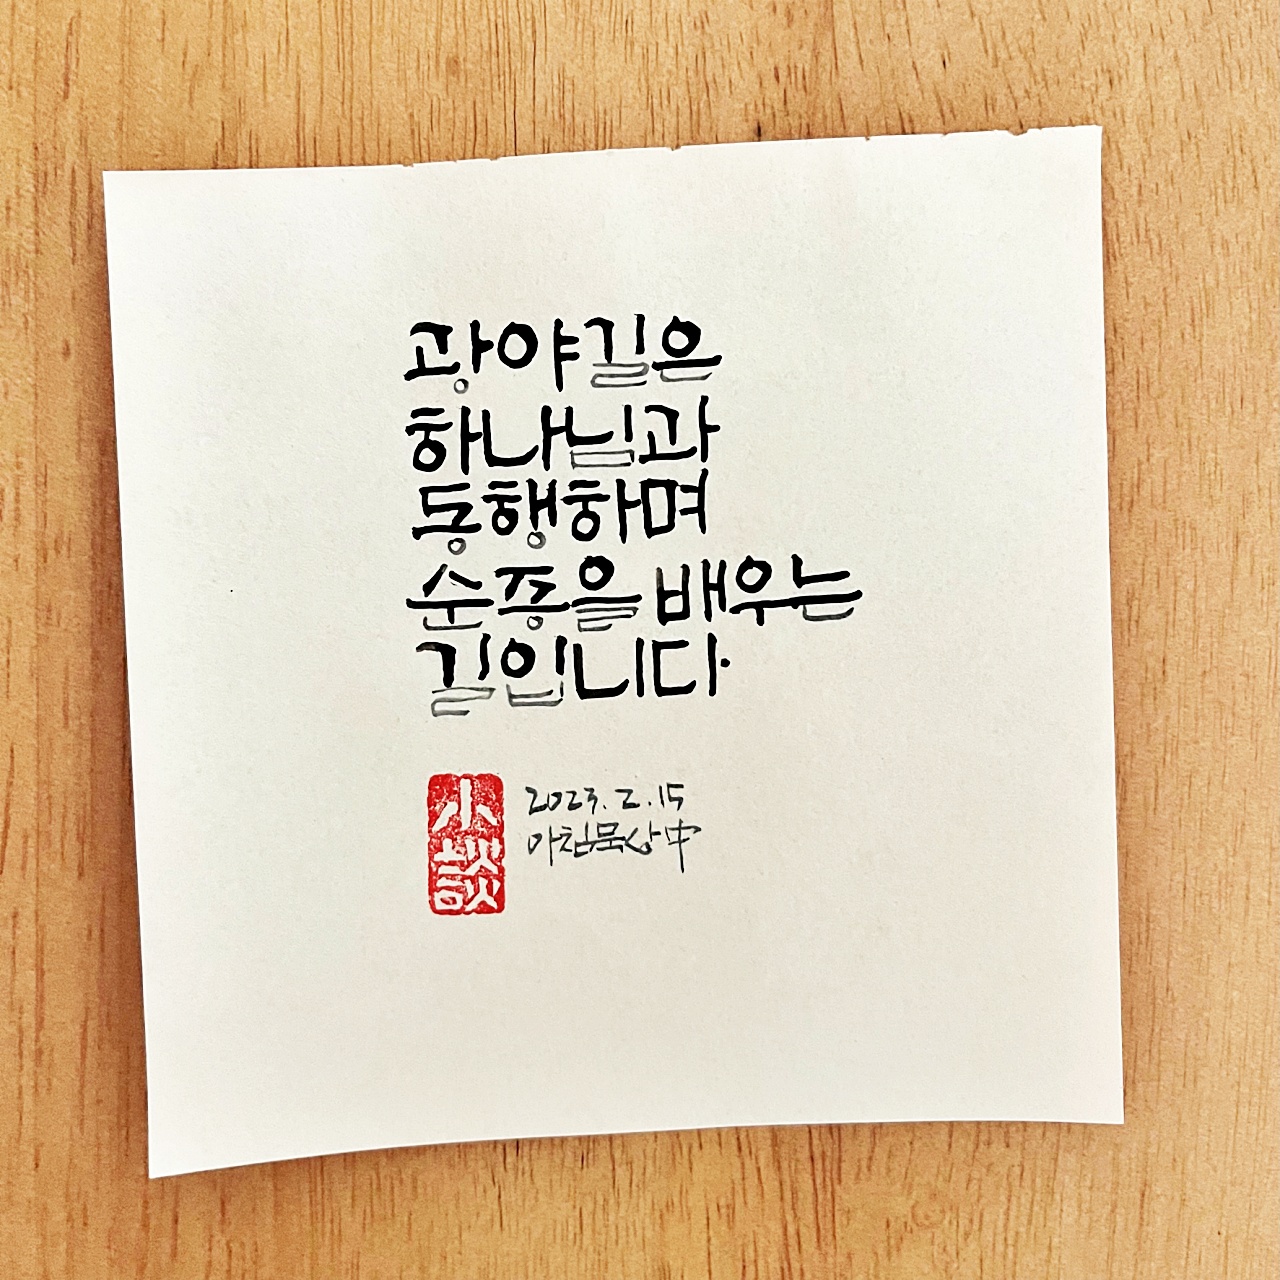 광야길은
하나님과
동행하며
순종을 배우는
길입니다.
小談
2023. 2. 15
아침묵상 中